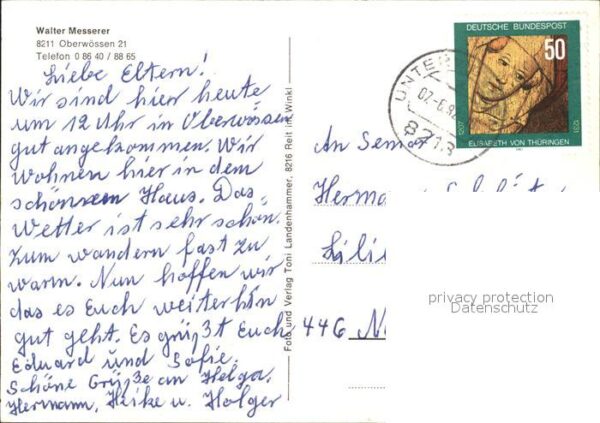 Walter Messerer
8211 Oberwössen 21
Telefon 0 86 40 / 88 65
Liebe Eltern!
Wir sind hier heute
um 12 Uhr in Oberwössen
gut angekommen. Wir
wohnen hier in dem
schönsem Haus. Das
Wetter ist sehr schön.
Zum wandern fast zu
warm. Nun hoffen wir
das es Euch weiterhin
gut geht. Es grüßt Euch
Eduard und Sofie.
Schöne Grüße an Helga,
Hermann, Heike u. Holger
Foto und Verlag Toni Landenhammer, 8216 Reit im Winkl
DEUTSCHE BUNDESPOST
50
1207
1231
ELISABETH VON THÜRINGEN
UNTER
8213
An
Herma
Lili
446 N
privacy protection
Datenschutz